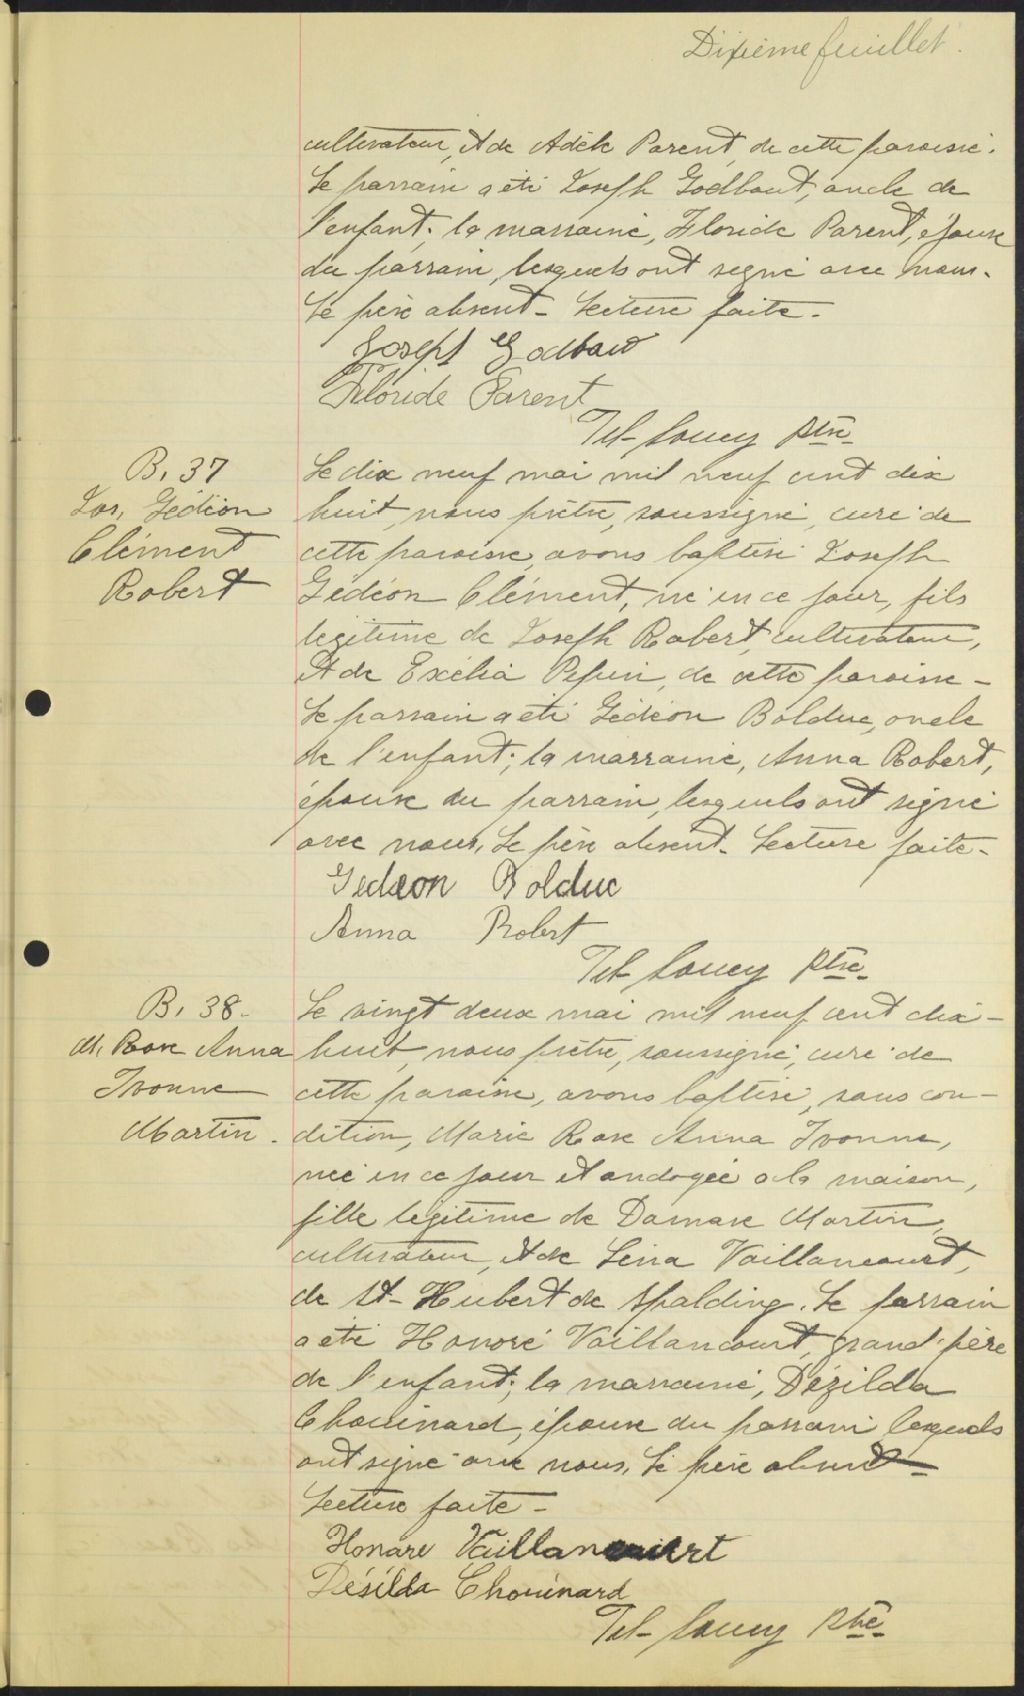 Dixième feuillet.
cultivateur, et de Adèle Parent, de cette paroisse.
Le parrain a été Joseph Godbout, oncle de
l'enfant; la marraine, Floride Parent, épouse
du parrain, lesquels ont signé avec nous.
Le père absent - Lecture faite -
Joseph Godbout
Floride Parent
Soucy Ptre
B. 37
Jos. Gédéon
Clément
Robert
Le dix neuf mai mil neuf cent dix
huit, nous prêtre, soussigné, curé de
cette paroisse, avons baptisé Joseph
Gédéon Clément, né en ce jour, fils
légitime de Joseph Robert, cultivateur,
et de Exélia Pepin, de cette paroisse -
Le parrain a été Gédéon Bolduc, oncle
de l'enfant; la marraine, Anna Robert,
épouse du parrain, lesquels ont signé
avec nous, Le père absent - Lecture faite -
Gedeon Bolduc
Anna Robert
Soucy Ptre
B. 38 -
M. Rose Anna
Ivonne
Martin.
Le vingt deux mai mil neuf cent dix -
huit, nous prêtre, soussigné, curé de
cette paroisse, avons baptisé, sous con-
dition, Marie Rose Anna Ivonne,
née en ce jour et ondoyée à la maison,
fille légitime de Damase Martin,
cultivateur, et de Léna Vaillancourt,
de St-Hubert de Spalding. Le parrain
a été Honoré Vaillancourt, grand'père
de l'enfant; la marraine, Dézilda
Chouinard, épouse du parrain, lesquels
ont signé avec nous. Le père absent -
Lecture faite -
Honare Vaillancourt
Désilda Chouinard
Soucy Ptre